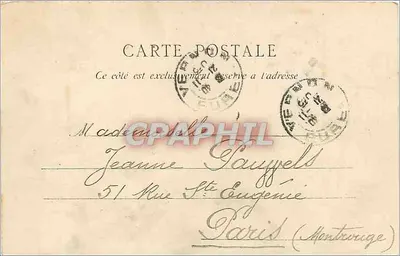 CARTE POSTALE
Ce côté est exclusivement réservé à l'adresse
VERNON
EURE
VERNON
EURE
Mademoiselle
CPAPHIL
Jeanne Pauwels
51 Rue Ste Eugénie
Paris (Montrouge)